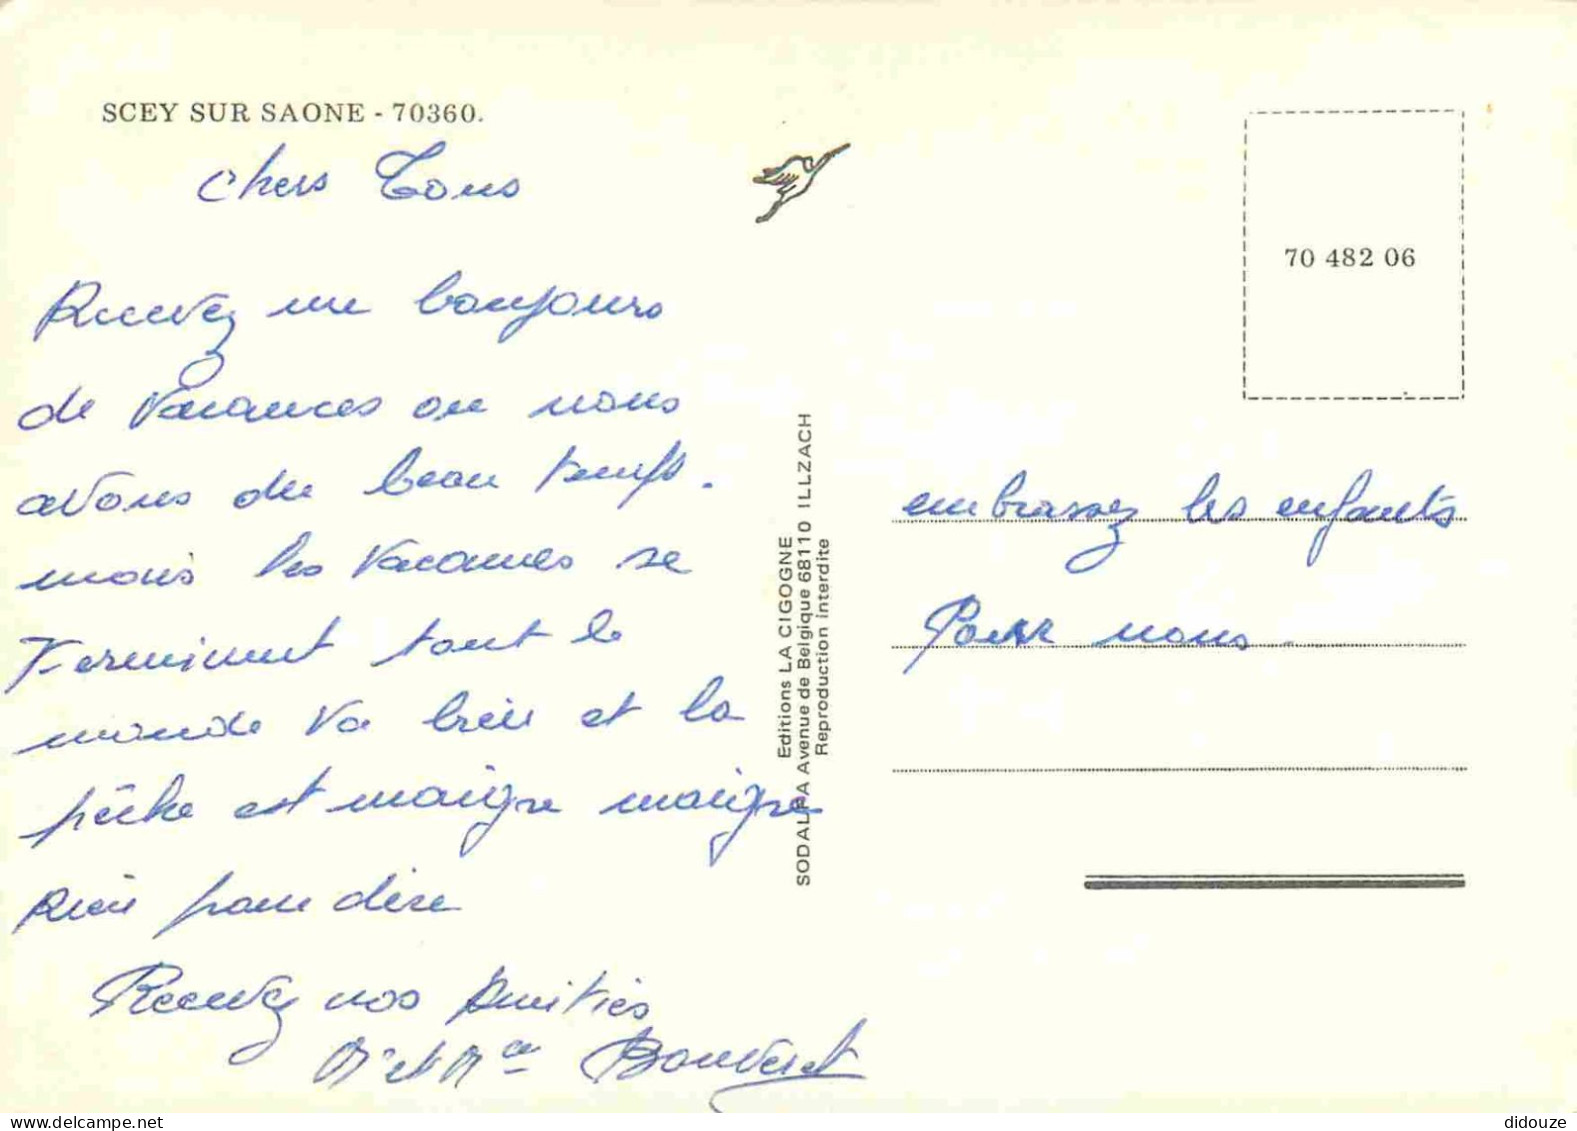 SCEY SUR SAONE - 70360.
Chers Tous
Recevez un bonjours
de vacances ou nous
avons du beau temps.
mais les vacances se
terminent tout le
monde va bien et la
pêche est maigre maigre
Rien pour dire
Recevez nos Amitiés
Mr et Mme Bouveret
Editions LA CIGOGNE
SODALFA Avenue de Belgique 68110 ILLZACH
Reproduction interdite
70 482 06
embrassez les enfants
Pour nous.
didouze